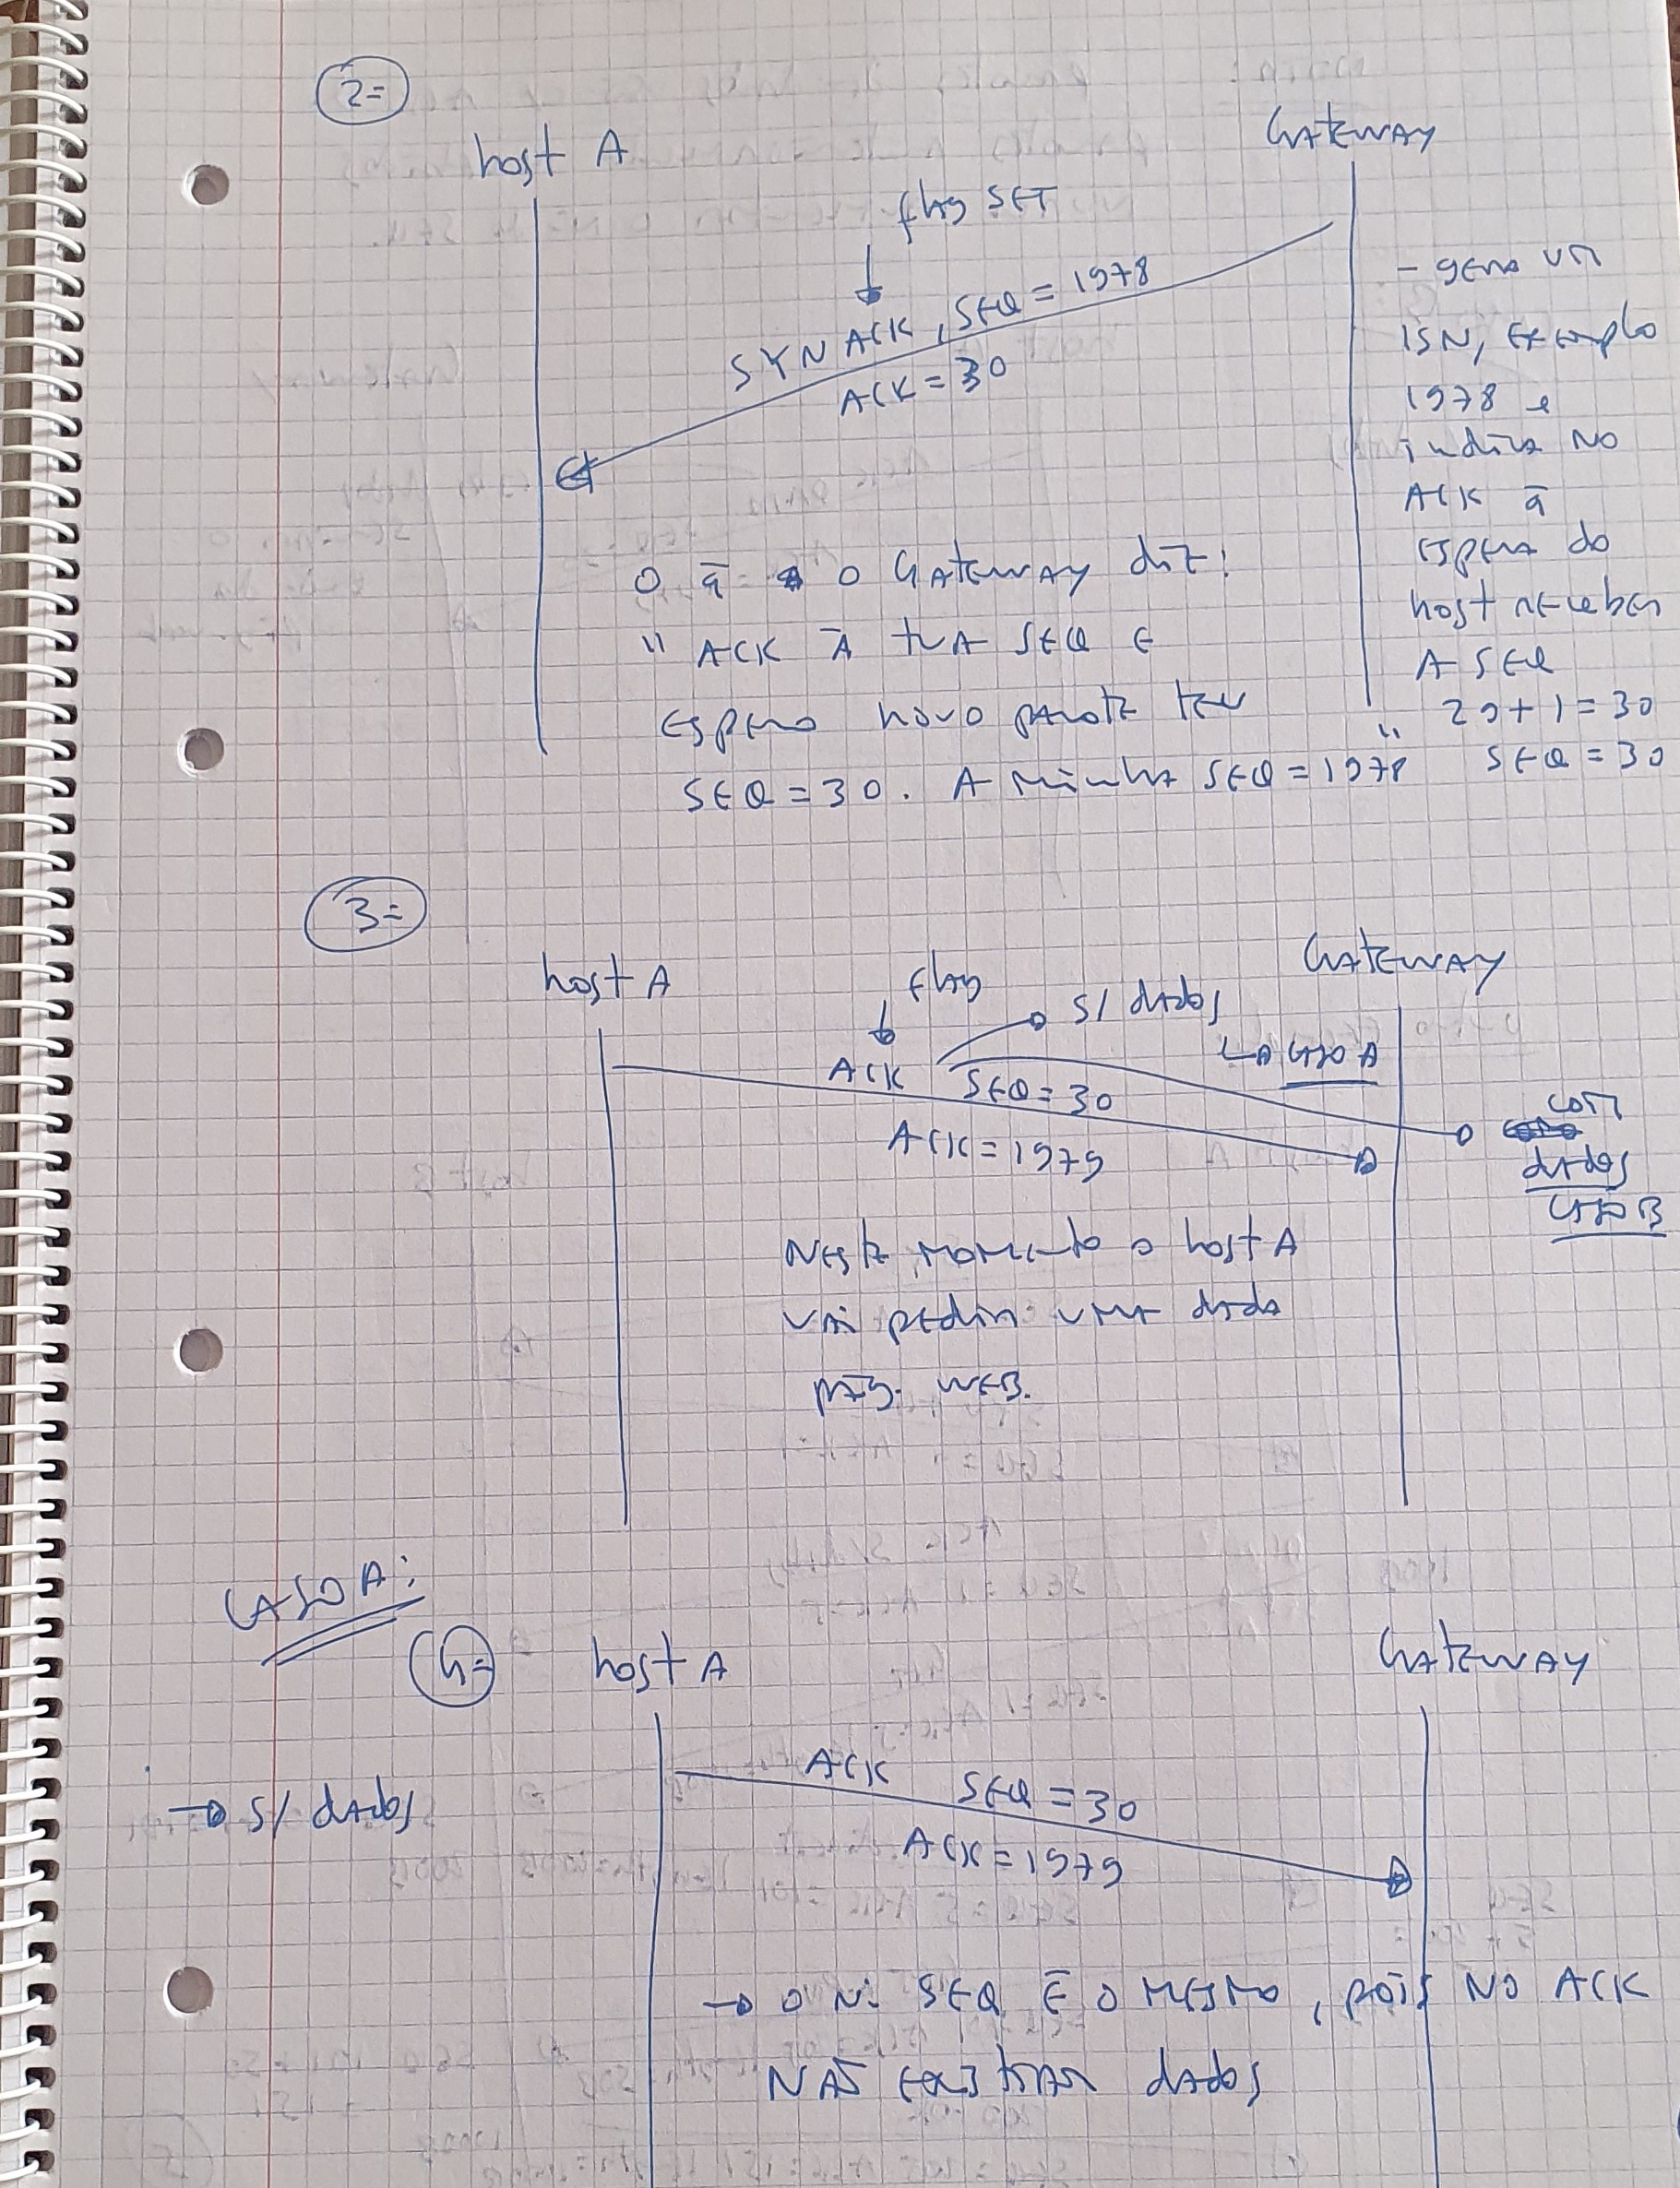 2=
host A
Gateway
flag SET
SYN ACK, SEQ = 1978
ACK = 30
- gera um
ISN, exemplo
1978 e
indica no
ACK q̄
espera do
host receber
A SEQ
29+1=30
SEQ = 30
O q̄ o Gateway diz:
" ACK À tua SEQ E
Espero novo pacote ter
SEQ = 30. A minha SEQ = 1978"
3=
host A
Gateway
flag
S/ dados
↳ CASO A
ACK
SEQ = 30
ACK = 1979
COM
dados
CASO B
Neste momento o host A
vai pedir uma dada
pág. WEB.
CASO A:
4=
host A
Gateway
→ S/ dados
ACK SEQ = 30
ACK = 1979
→ O N. SEQ É O MESMO, pois NO ACK
NÃO existiam dados